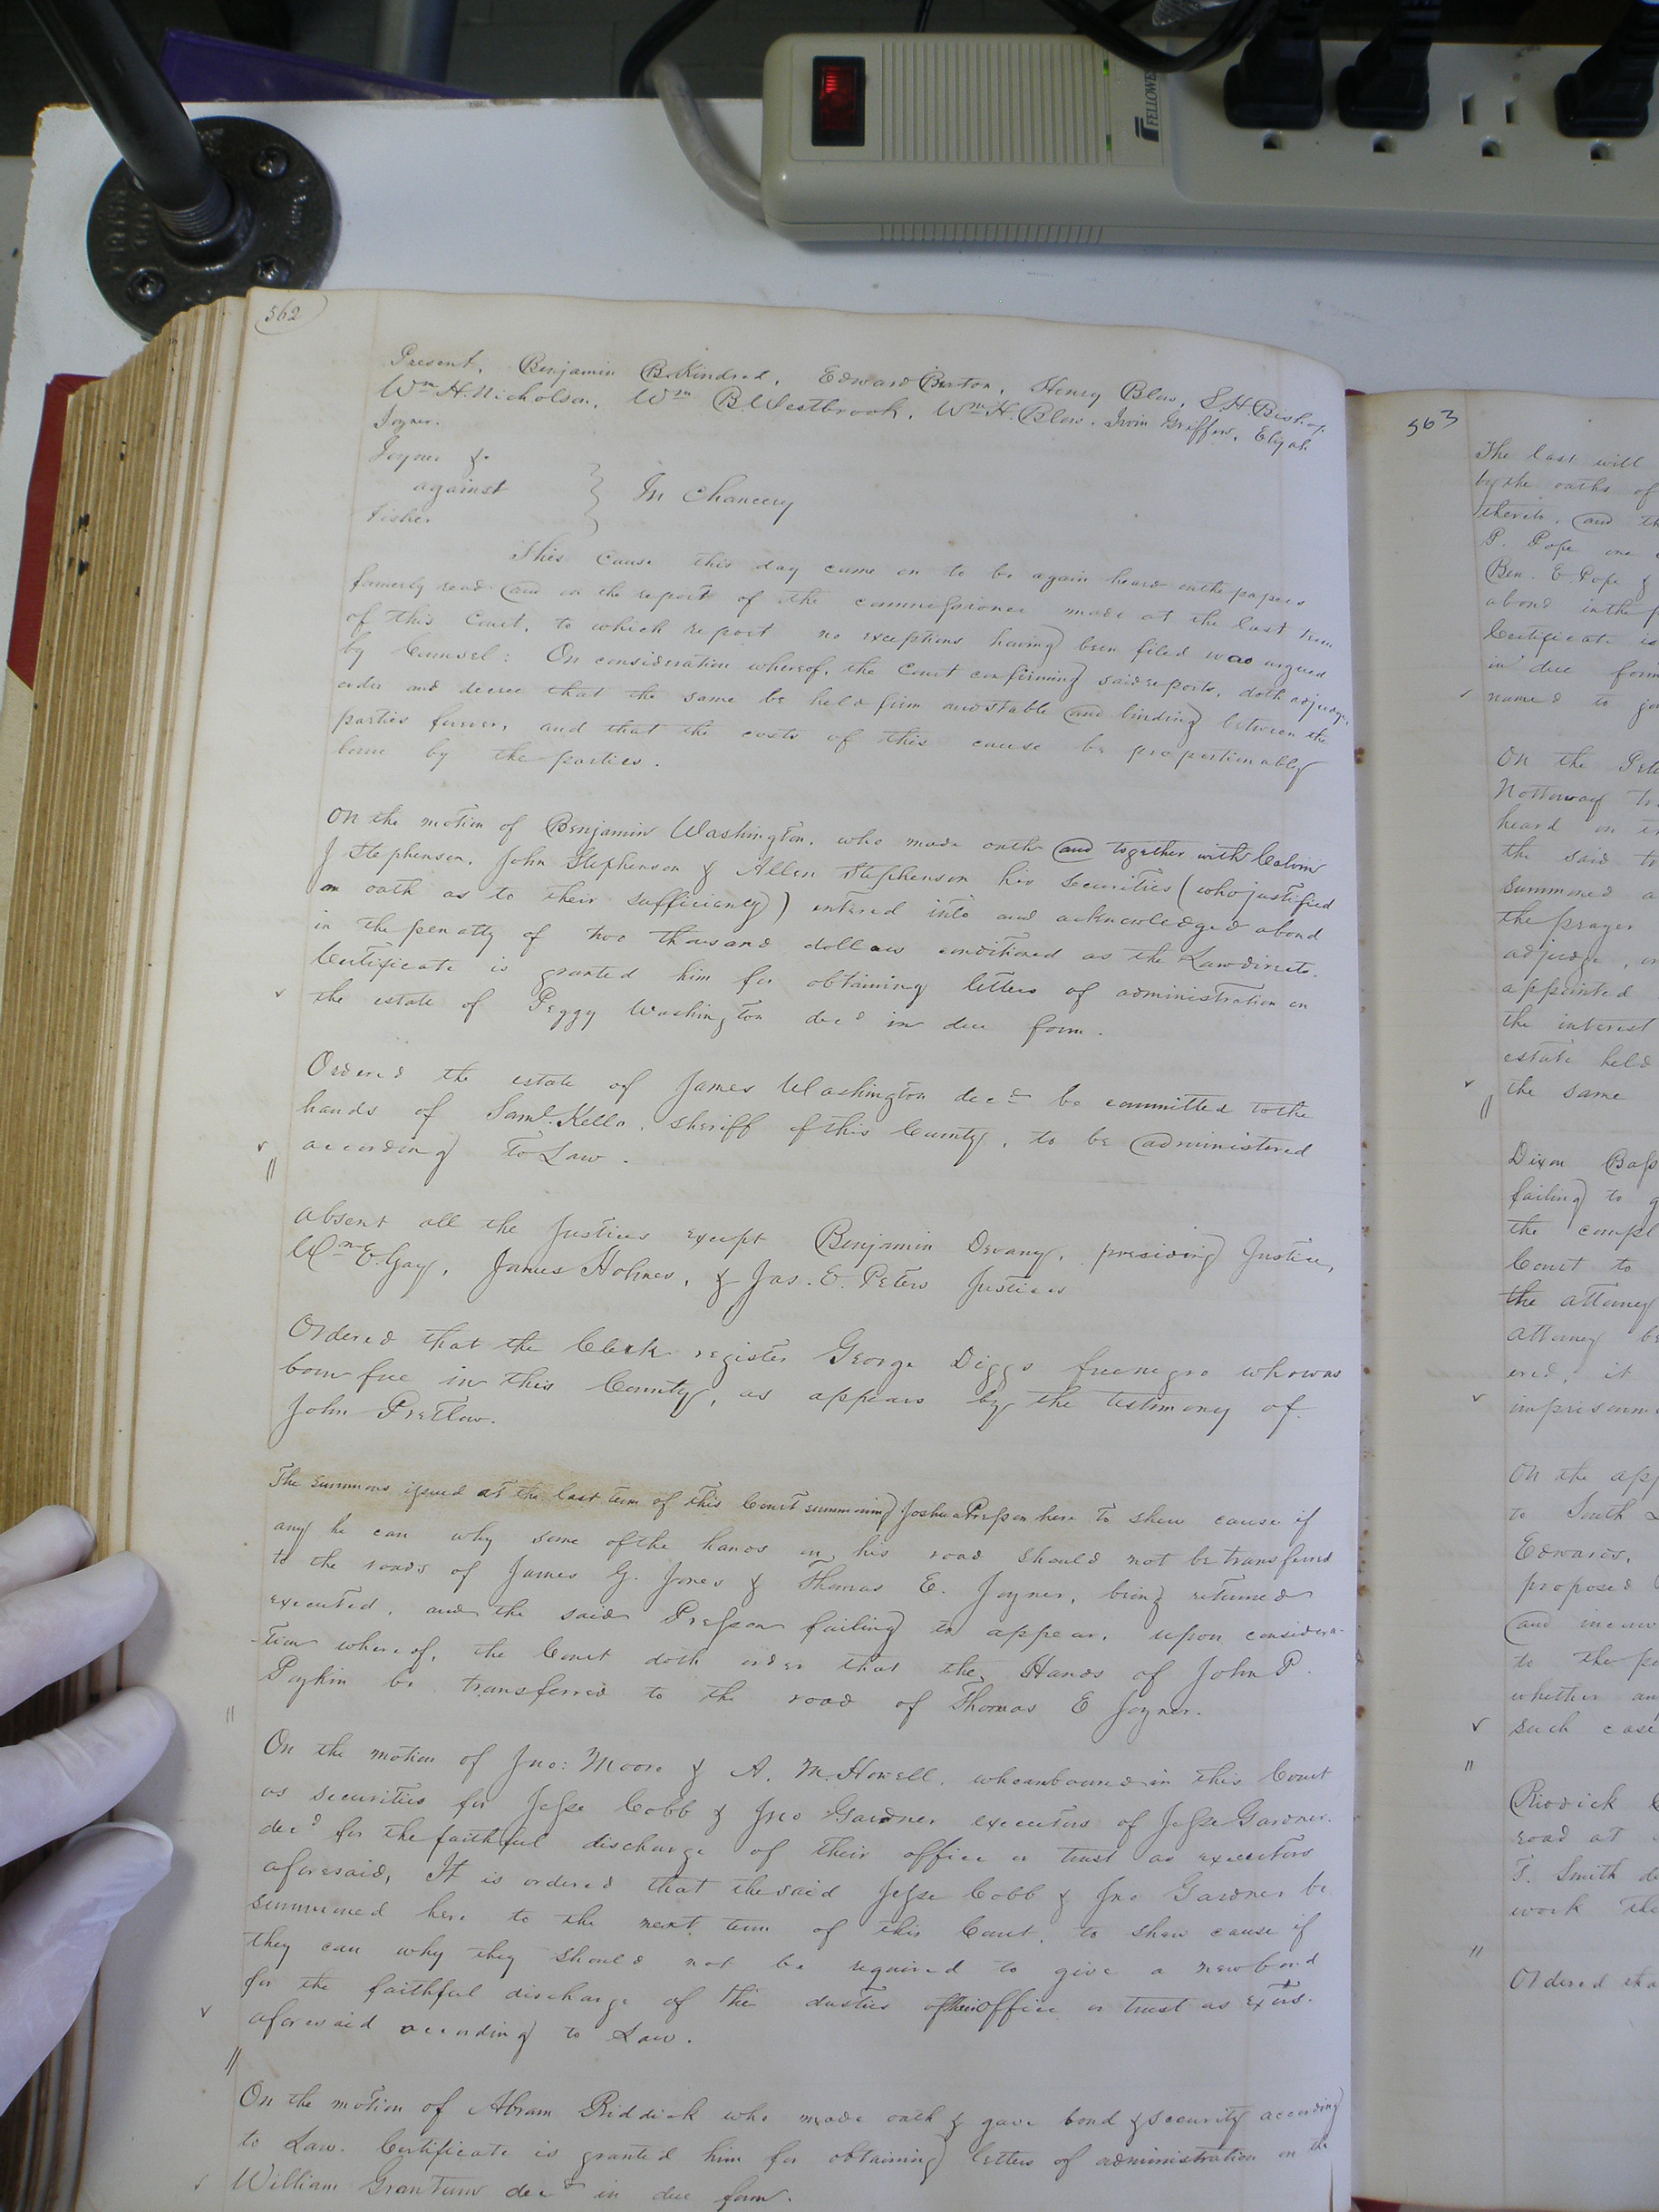 FELLOWES
562
Present, Benjamin B. Kindred, Edward Burton, Henry Blow, S. H. Bishop
Wm H. Nicholson, Wm B Westbrook, Wm H. Blow, Irvin Griffin, Elijah
Joyner.
Joyner &
against } In Chancery
Fisher
This Cause this day came on to be again heard on the papers
formerly read and on the report of the commissioner made at the last term
of this Court, to which report no exceptions having been filed was argued
by Counsel: On consideration whereof, the Court confirming said reports, doth adjudge,
order and decree that the same be held firm and stable and binding between the
parties forever, and that the costs of this cause be proportionably
borne by the parties.
On the motion of Benjamin Washington, who made oath and together with Calvin
J Stephenson, John Stephenson & Allen Stephenson his securities (who justified
on oath as to their sufficiency) entered into and acknowledged a bond
in the penalty of two thousand dollars conditioned as the Law directs.
Certificate is granted him for obtaining letters of administration on
the estate of Peggy Washington decd in due form.
Ordered the estate of James Washington decd be committed to the
hands of Saml. Kello, sheriff of this County, to be administered
according to Law.
absent all the Justices except Benjamin Devany, presiding Justice,
Wm E. Gay, James Holmes, & Jas. E. Peters Justices
Ordered that the Clerk register George Diggs free negro who was
born free in this County, as appears by the testimony of
John Pretlow.
The summons issued at the last term of this Court summoning Joshua Presson here to shew cause if
any he can why some of the hands on his road should not be transferred
to the roads of James G. Jones & Thomas E. Joyner, being returned
executed, and the said Presson failing to appear, upon considera-
-tion whereof, the Court doth order that the Hands of John P.
Paykin be transferred to the road of Thomas E Joyner.
On the motion of Jno: Moore & A. M. Howell, who are bound in this Court
as securities for Jesse Cobb & Jno Gardner executors of Jesse Gardner
decd for the faithful discharge of their office or trust as executors
aforesaid, It is ordered that the said Jesse Cobb & Jno Gardner be
summoned here to the next term of this Court, to shew cause if
they can why they should not be required to give a new bond
for the faithful discharge of the dusties of their office or trust as Exors.
aforesaid according to Law.
On the motion of Abram Riddick who made oath & gave bond & security according
to Law. Certificate is granted him for obtaining letters of administration on the
William Grantum decd in due form.
563
The last will
by the oaths of
thereto, and th
P. Pope one
Ben. E. Pope &
a bond in the p
Certificate is
in due form
named to jo
On the Peti
Nottoway Tr
heard on th
the said tr
summoned a
the prayer
adjudge, or
appointed
the interest
estate held
the same
Dixon Bass
failing to g
the compl
Court to
the attorney
attorney be
ered, it
imprisonm
On the app
to South
Edwards,
proposed
and inconv
to the pe
whether an
such case
Riddick
road at
T. Smith de
work the
Ordered tha